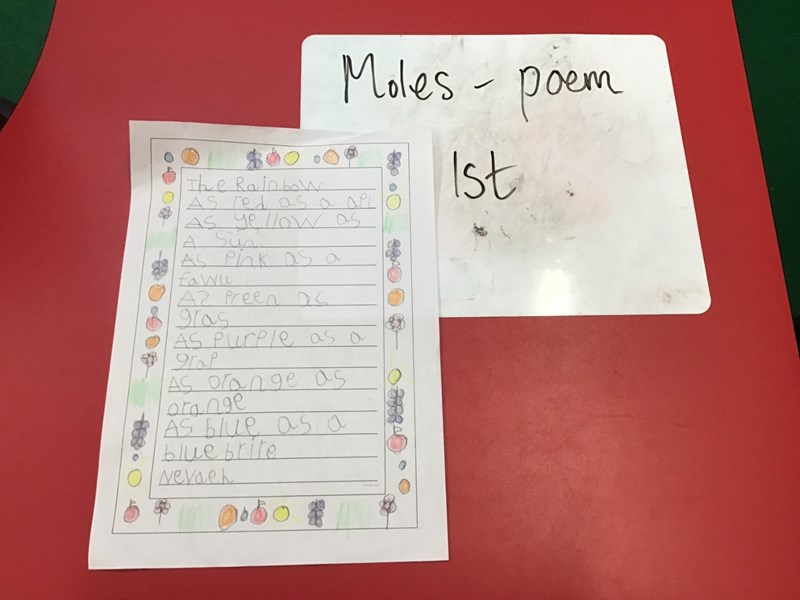 Moles - poem
1st
The Rainbow
As red as a apl
As yellow as
A Sun
As Pink as a
fawu
As preen as
gras
As Purple as a
grap
As orange as
orange
As blue as a
blue brite
Nevaeh